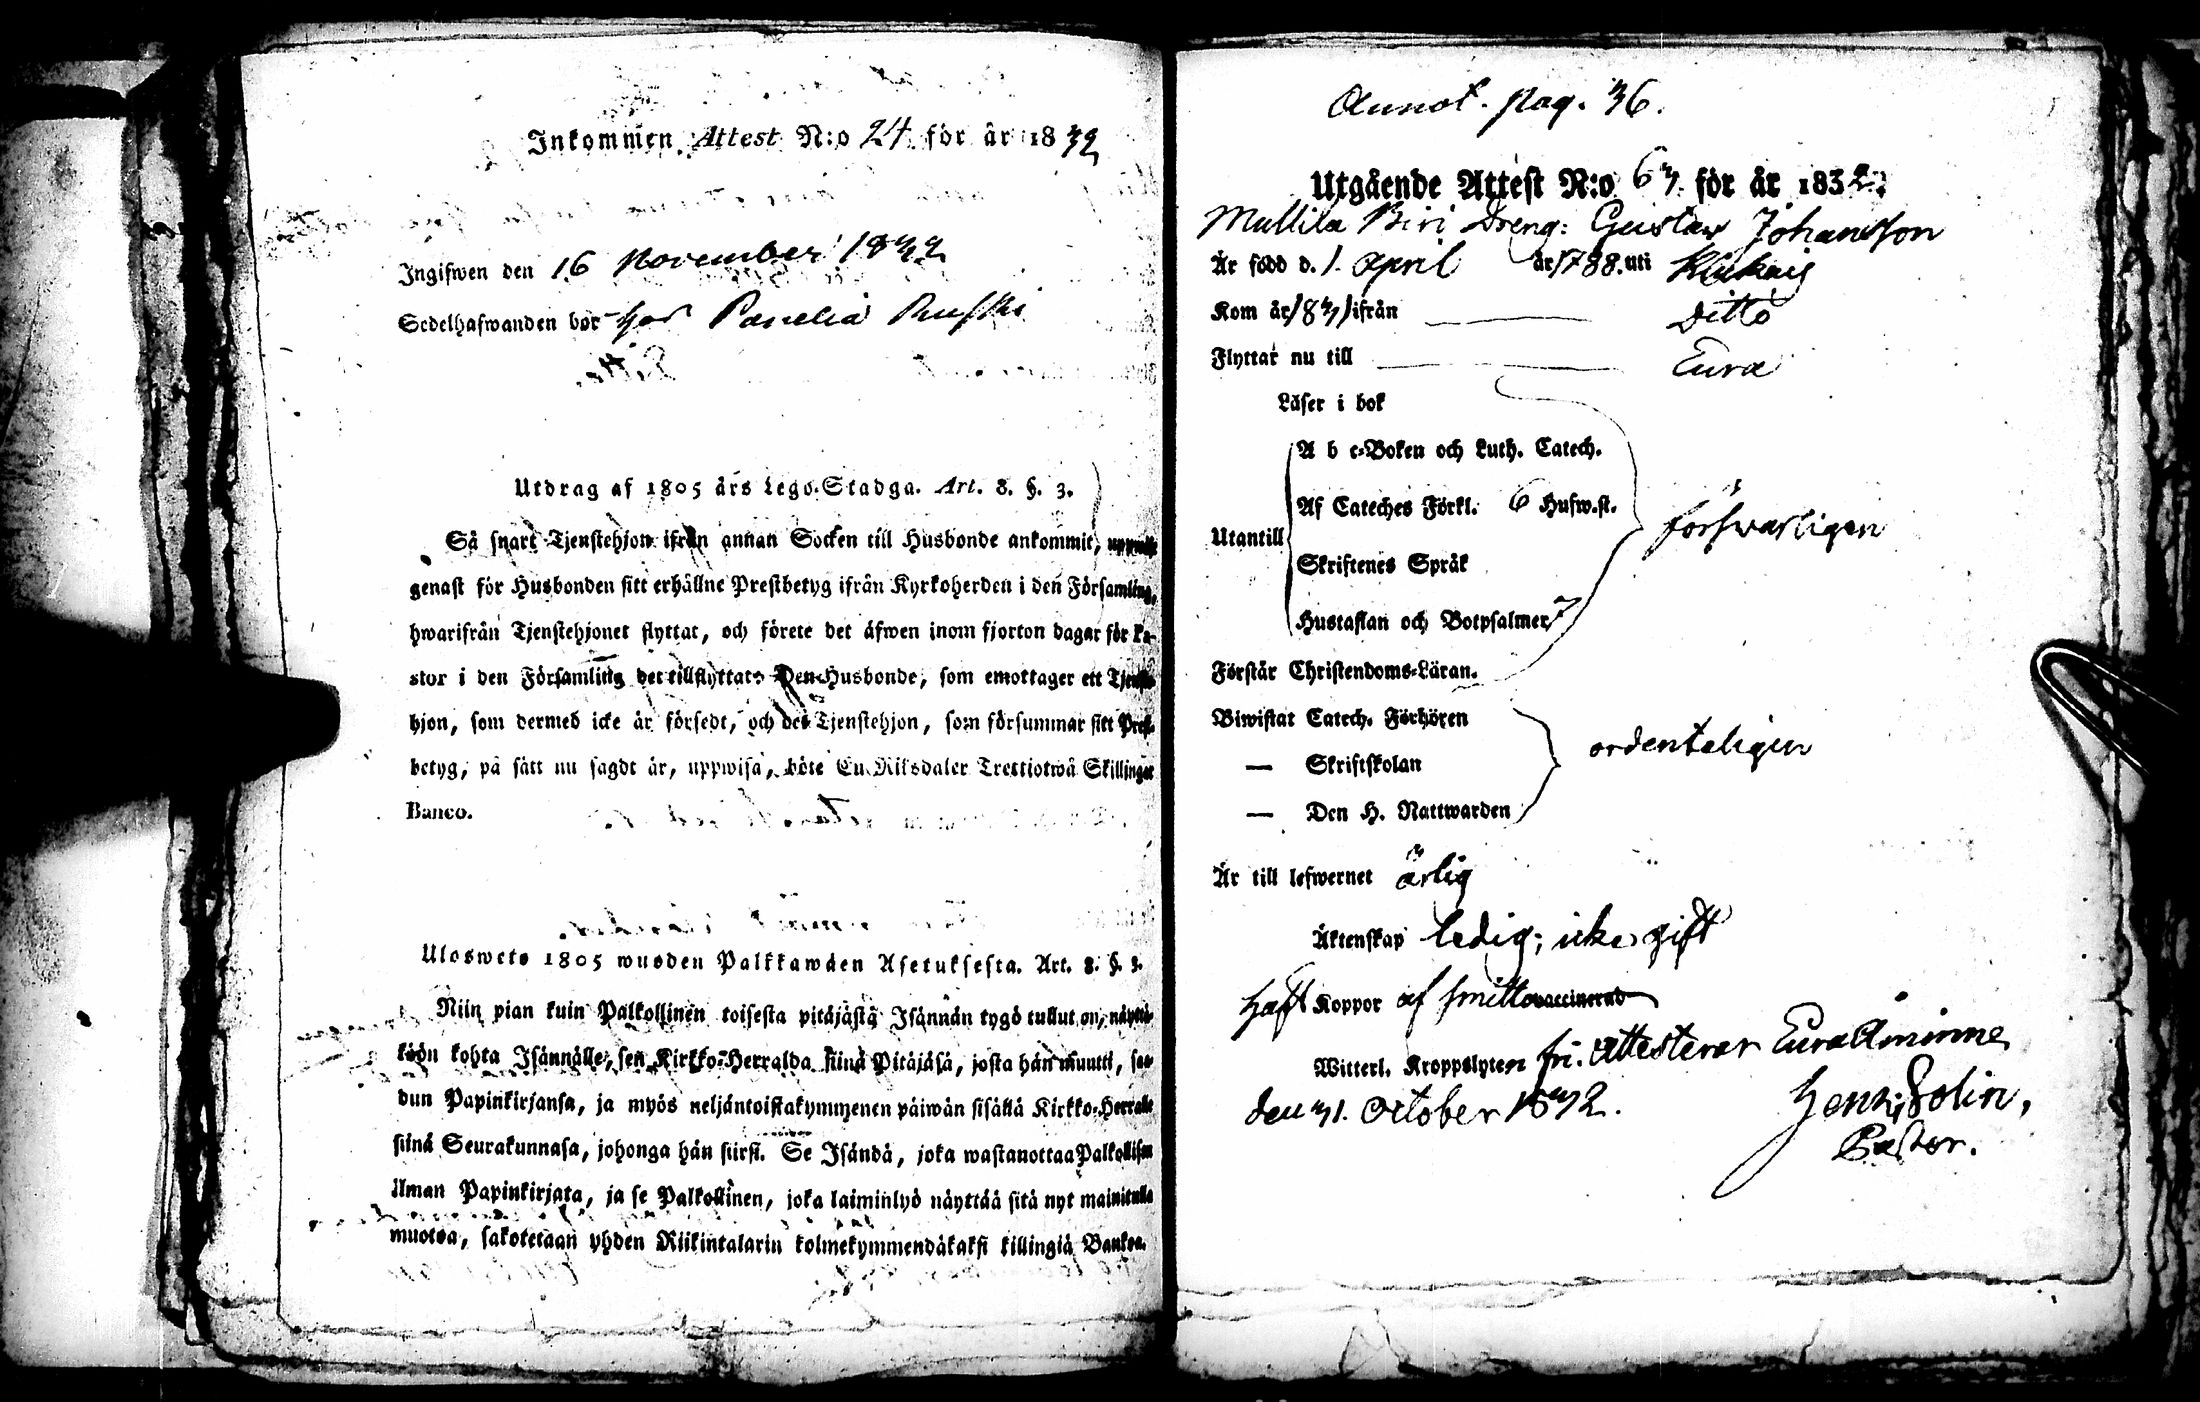 Inkommen Attest N:o 24 för år 1832
Ingifwen den 16 November 1832
Sedelhafwanden bor hos Panelia
Utdrag af 1805 års Lego-Stadga. Art. 8. §. 3.
Så snart Tjenstehjon ifrån annan Socken till Husbonde ankommit,
genast för Husbonden sitt erhållne Prestbetyg ifrån Kyrkoherden i den Församling,
hwarifrån Tjenstehjonet flyttat, och förete det äfwen inom fjorton dagar för Pa-
stor i den Församling det tillflyttat. Den Husbonde, som emottager ett Tjenste-
hjon, som dermed icke är försedt, och det Tjenstehjon, som försummar sitt Prest-
betyg, på sätt nu sagdt är, uppwisa, böte En Riksdaler Trettiotwå Skillingar
Banco.
Uloswets 1805 wuoden Palkkawäen Asetuksesta. Art. 8. §. 3.
Niin pian kuin Palkollinen toisesta pitäjästä Isännän tygö tullut on, näyttä-
köön kohta Isännälle, sen Kirkko-Herralda siinä Pitäjäsä, josta hän muutti, saa-
dun Papinkirjansa, ja myös neljäntoistakymmenen päiwän sisällä Kirkko-Herralle
siinä Seurakunnasa, johonga hän siirsi. Se Isändä, joka wastanottaa Palkollisen
ilman Papinkirjata, ja se Palkollinen, joka laiminlyö näyttää sitä nyt mainitulla
muotoa, sakotetaan yhden Riikintalarin kolmekymmendäkaksi killingiä Bankoa.
Annot. pag. 36.
Utgående Attest N:o 63 för år 1832.
Mullila Piri Dreng: Gustav Johansson
Är född d. 1. April år 1788. uti Kiukais
Kom år 1831 ifrån Ditto
Flyttar nu till Eura
Läser i bok
A b c-Boken och Luth. Catech.
Af Cateches Förkl. 6 Hufw.st.
Utantill
försvarligen
Skriftenes Språk
Hustaflan och Botpsalmer 7
Förstår Christendoms-Läran.
Biwistat Catech. Förhören
ordenteligen
— Skriftskolan
— Den H. Nattwarden
Är till lefwernet ärlig
Äktenskap ledig; icke gift
haft Koppor af smitto vaccinerad
Witterl. Kroppslyten fri. Attesterar Eura Åminne
den 31. October 1832.
Henr: Bolin,
Pastor.